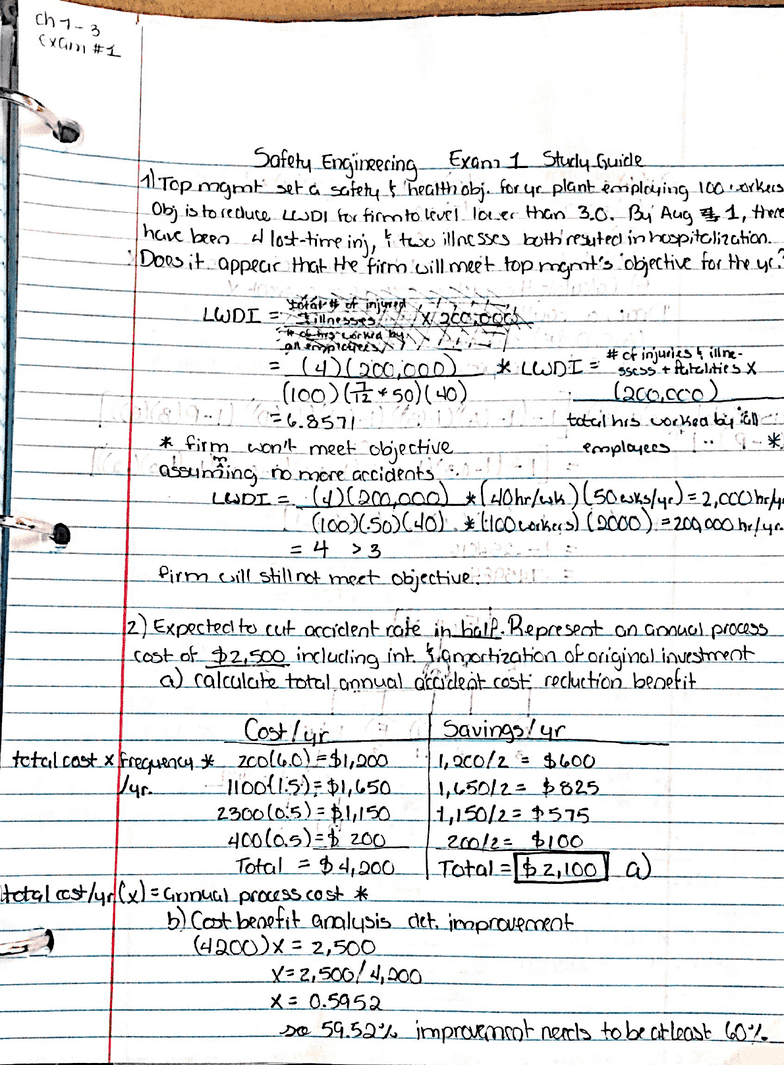 Ch 1-3
Exam #1
Safety Engineering Exam 1 Study Guide
1) Top mgmt set a safety & health obj. for yr plant employing 100 workers
Obj is to reduce LWDI for firm to level lower than 3.0. By Aug 1, there
have been 4 lost-time inj, & two illnesses both resulted in hospitalization.
Does it appear that the firm will meet top mgmt's objective for the yr.?
LWDI = total # of injured & illnesses x 200,000
# of hrs worked by
all employees
= (4)(200,000)
(100)(7/12 * 50)(40)
= 6.8571
* LWDI = # of injuries & illne-
sses + fatalities x
(200,000)
total hrs worked by all
employees *
* firm won't meet objective
assuming no more accidents
LWDI = (4)(200,000) * (40hr/wk)(50wks/yr) = 2,000hr/yr
(100)(50)(40) * (100 workers)(2000) = 200,000 hr/yr.
= 4 > 3
firm will still not meet objective.
2) Expected to cut accident rate in half. Represent an annual process
cost of $2,500 including int. & amortization of original investment
a) calculate total annual accident cost reduction benefit
Cost/yr Savings/yr
total cost x frequency * 200(6.0) = $1,200 1,200/2 = $600
/yr. 1100(1.5) = $1,650 1,650/2 = $825
2300(0.5) = $1,150 1,150/2 = $575
400(0.5) = $ 200 200/2 = $100
Total = $4,200 Total = $2,100 a)
total cost/yr (x) = annual process cost *
b) Cost benefit analysis det. improvement
(4200)x = 2,500
x = 2,500/4,200
x = 0.5952
so 59.52% improvement needs to be at least 60%.